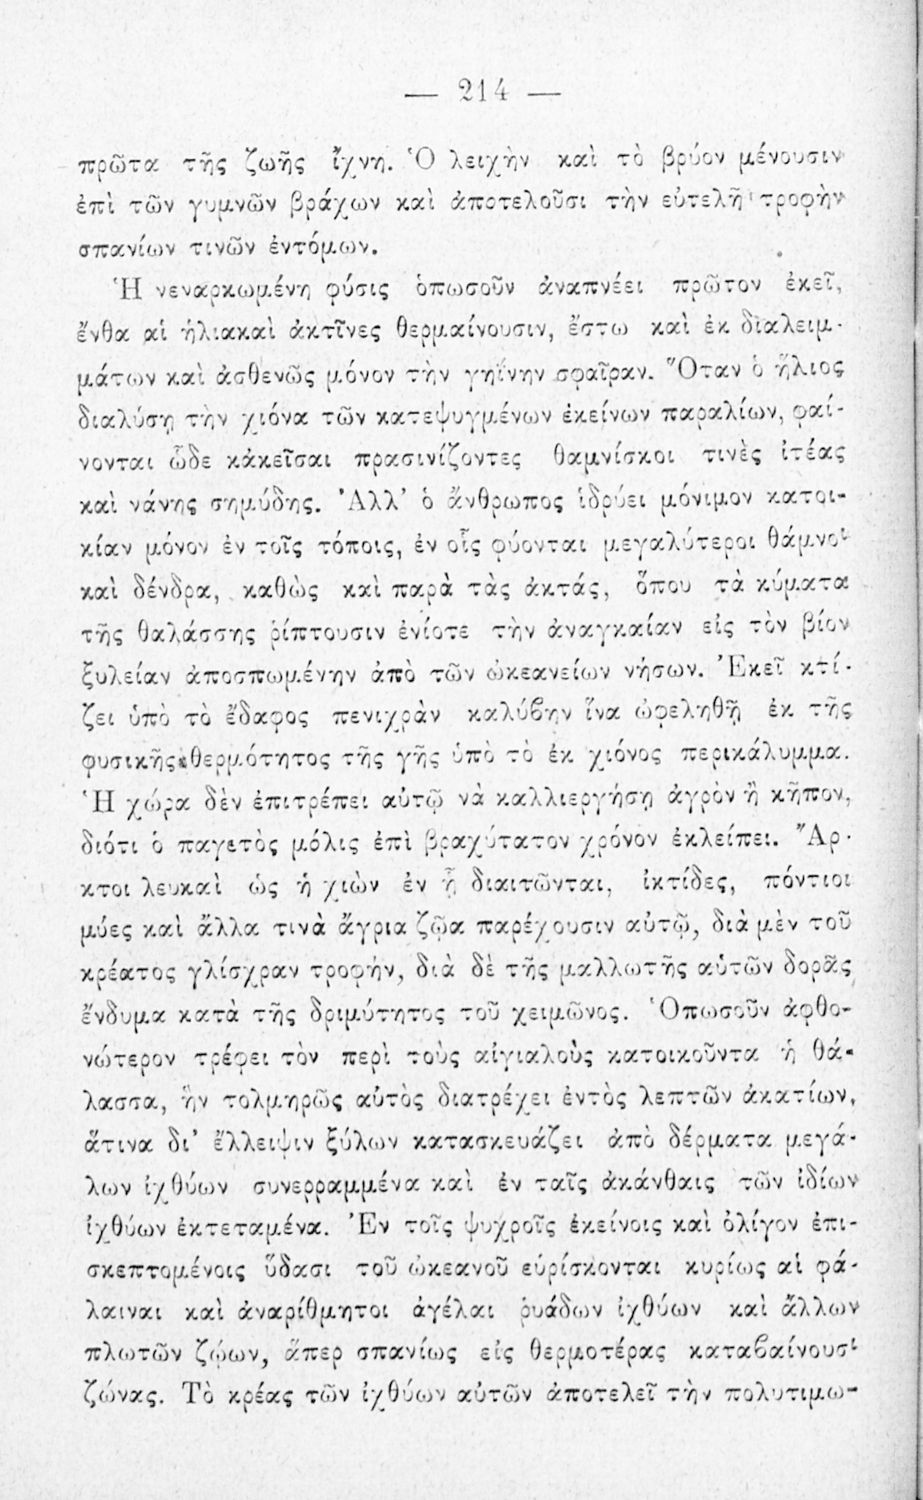 — 214 —
πρῶτα τῆς ζωῆς ἴχνη. Ὁ λειχὴν καὶ τὸ βρύον μένουσιν
ἐπὶ τῶν γυμνῶν βράχων καὶ ἀποτελοῦσι τὴν εὐτελῆ τροφὴν
σπανίων τινῶν ἐντόμων.
Ἡ νεναρκωμένη φύσις ὁπωσοῦν ἀναπνέει πρῶτον ἐκεῖ,
ἔνθα αἱ ἡλιακαὶ ἀκτῖνες θερμαίνουσιν, ἔστω καὶ ἐκ διαλειμ-
μάτων καὶ ἀσθενῶς μόνον τὴν γηΐνην σφαῖραν. Ὅταν ὁ ἥλιος
διαλύσῃ τὴν χιόνα τῶν κατεψυγμένων ἐκείνων παραλίων, φαί-
νονται ὧδε κἀκεῖσαι πρασινίζοντες θαμνίσκοι τινὲς ἰτέας
καὶ νάνης σημύδης. Ἀλλ’ ὁ ἄνθρωπος ἱδρύει μόνιμον κατοι-
κίαν μόνον ἐν τοῖς τόποις, ἐν οἷς φύονται μεγαλύτεροι θάμνοι
καὶ δένδρα, καθὼς καὶ παρὰ τὰς ἀκτάς, ὅπου τὰ κύματα
τῆς θαλάσσης ῥίπτουσιν ἐνίοτε τὴν ἀναγκαίαν εἰς τὸν βίον
ξυλείαν ἀποσπωμένην ἀπὸ τῶν ὠκεανείων νήσων. Ἐκεῖ κτί-
ζει ὑπὸ τὸ ἔδαφος πενιχρὰν καλύβην ἵνα ὠφεληθῇ ἐκ τῆς
φυσικῆς θερμότητος τῆς γῆς ὑπὸ τὸ ἐκ χιόνος περικάλυμμα.
Ἡ χώρα δὲν ἐπιτρέπει αὐτῷ νὰ καλλιεργήσῃ ἀγρὸν ἢ κῆπον,
διότι ὁ παγετὸς μόλις ἐπὶ βραχύτατον χρόνον ἐκλείπει. Ἄρ-
κτοι λευκαὶ ὡς ἡ χιὼν ἐν ᾗ διαιτῶνται, ἰκτίδες, πόντιοι
μύες καὶ ἄλλα τινὰ ἄγρια ζῷα παρέχουσιν αὐτῷ, διὰ μὲν τοῦ
κρέατος γλίσχραν τροφήν, διὰ δὲ τῆς μαλλωτῆς αὑτῶν δορᾶς
ἔνδυμα κατὰ τῆς δριμύτητος τοῦ χειμῶνος. Ὁπωσοῦν ἀφθο-
νώτερον τρέφει τὸν περὶ τοὺς αἰγιαλοὺς κατοικοῦντα ἡ θά-
λασσα, ἣν τολμηρῶς αὐτὸς διατρέχει ἐντὸς λεπτῶν ἀκατίων,
ἅτινα δι’ ἔλλειψιν ξύλων κατασκευάζει ἀπὸ δέρματα μεγά-
λων ἰχθύων συνερραμμένα καὶ ἐν ταῖς ἀκάνθαις τῶν ἰδίων
ἰχθύων ἐκτεταμένα. Ἐν τοῖς ψυχροῖς ἐκείνοις καὶ ὀλίγον ἐπι-
σκεπτομένοις ὕδασι τοῦ ὠκεανοῦ εὑρίσκονται κυρίως αἱ φά-
λαιναι καὶ ἀναρίθμητοι ἀγέλαι ῥυάδων ἰχθύων καὶ ἄλλων
πλωτῶν ζῴων, ἅπερ σπανίως εἰς θερμοτέρας καταβαίνουσι
ζώνας. Τὸ κρέας τῶν ἰχθύων αὐτῶν ἀποτελεῖ τὴν πολυτιμω-